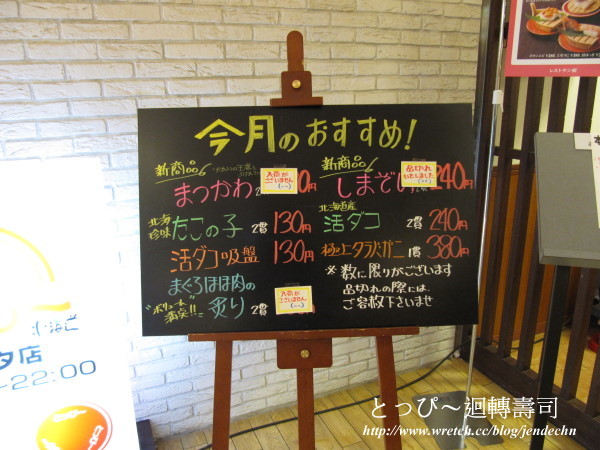 今月のおすすめ!
新商品
まつかわ
入荷が
ございません
新商品
しまぞい
品切れ
いたしました
240円
北海
珍味
たこの子 2貫 130円
北海道産
活ダコ 2貫 240円
活ダコ吸盤 130円
極上タラバガニ 1貫 380円
まぐろほほ肉の
炙り 2貫
満点!!
入荷が
ございません
※数に限りがございます
品切れの際には、
ご容赦下さいませ
店
22:00
レストラン街
とっぴ～迴轉壽司
http://www.wretch.cc/blog/jendechn